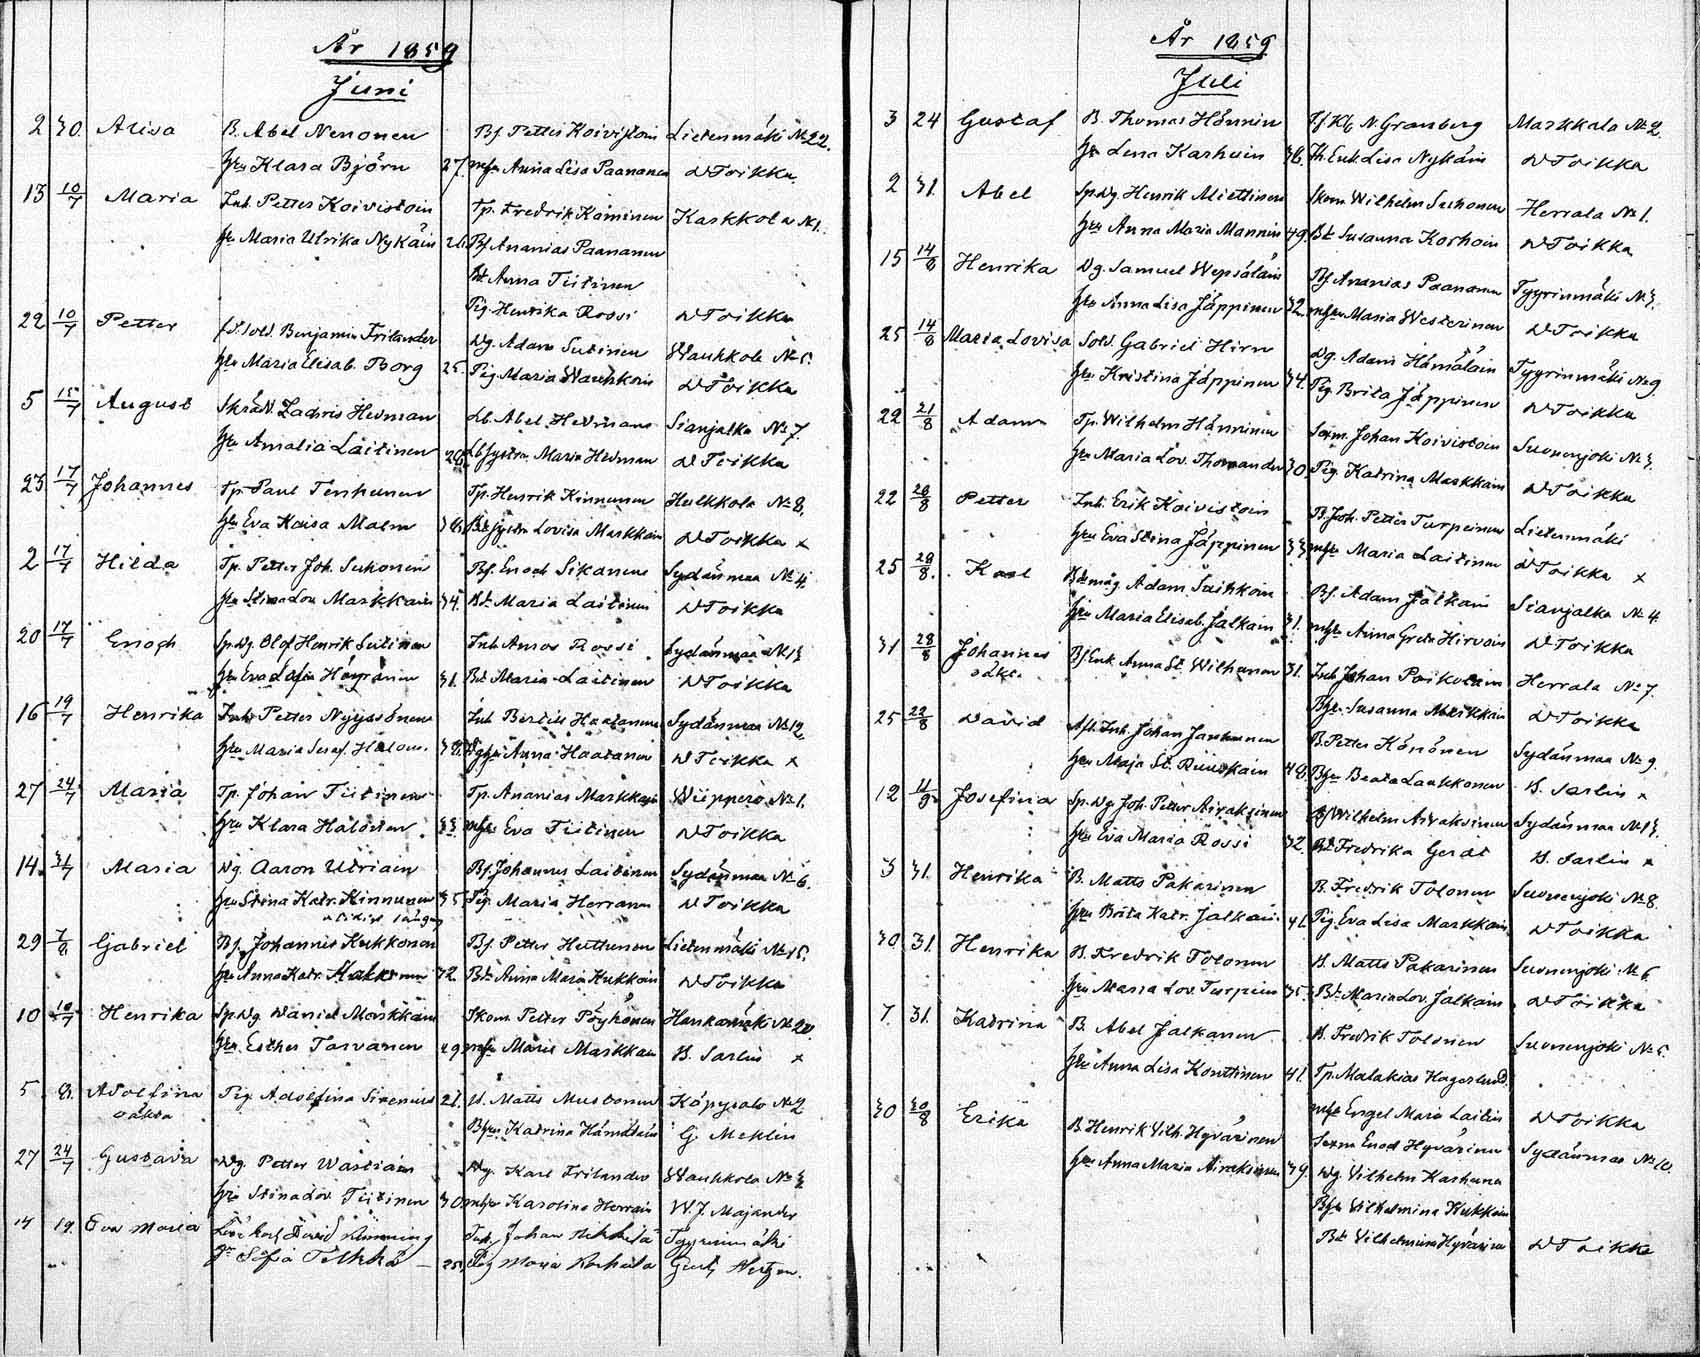 År 1859
Juni
2 30. Alisa B. Abel Nenonen Bf. Petter Koivistoin Lietenmäki № 22.
Hu Klara Björn 27. Anna Lisa Paananen D Toikka
13 10/7 Maria Inh. Petter Koivistoin Tp. Fredrik Käminen Kaskkola № 1.
Hu Maria Ulrika Nykäin 26. Bf Ananias Paananen
Bd. Anna Tiitinen
Pig. Henrika Rossi D Toikka
22 10/7 Petter f.d. sold. Benjamin Frilander Dg. Adam Sutinen Wauhkola № 5.
Hu Maria Elisab. Borg 25. Pig Maria Wauhkoin D Toikka
5 15/7 August Skräd. Zachris Hedman Lb. Abel Hedman Sianjalka № 7.
Hu Amalia Laitinen 28. Maria Hedman D Toikka
23 17/7 Johannes Tp. Paul Tenhunen Tp. Henrik Kinnunen Hulkkola № 8.
Hu Eva Kaisa Malm Lovisa Markkain D Toikka x
2 17/7 Hilda Tp. Petter Joh. Suhonen Bf. Enoch Sikanen Sydänmaa № 4.
Hu Stina Lov. Markkain 34. Bd. Maria Laitinen D Toikka
20 17/7 Enoch Sp. Dg. Olof Henrik Sutinen Inh Amos Rossi Sydänmaa № 13
Hu Eva Sofia Häyrinen 31. Bd. Maria Laitinen D Toikka
16 19/7 Henrika Inh. Petter Nyyssönen Inh Bertill Haatanen Sydänmaa № 12.
Hu Maria Anna Haatanen D Toikka x
27 24/7 Maria Tp. Johan Tiitinen Tp. Ananias Markkain Wiippero № 1.
Hu Klara Halonen 33. Eva Tiitinen D Toikka
14. 31/7 Maria Dg. Aaron Utriain Bf. Johannes Laitinen Sydänmaa № 6.
Hu Stina Katr. Kinnunen 35. Pig. Maria Herranen D Toikka
29 7/8 Gabriel Bf. Johannes Kukkonen Bf. Petter Huttunen Lietenmäki № 15.
Hu Anna Katr. 32. Bd. Anna Maria Kukkain D Toikka
10 10/7 Henrika Sp. Dg. Daniel Markkain Skom. Petter Pöyhönen Hankamäki № 20.
Hu. Esther Tarvanen 29. Maria Markkain B. Sarlin x
5 8. Adolfina Pig. Adolfina Sirenius 21. B. Matts Mustonen Käpysalo № 2
oäkta Bhu Katrina Hämäläin G. Meklin
27 24/7 Gustava Dg. Petter Wästiäin Dg. Karl Frilander Wauhkola № 3
Hu Stina Lov. Tiitinen 30. Karolina Herrain W. J. Majander
17 19. Eva Maria David Lemming Inh. Johan Tyyrinmäki
Hr Sofia Tilkka — 25. Pig Maria Korhola Gust. Alutzen.
År 1859
Juli
3 24 Gustaf B. Thomas Hännin N Granberg Markkala № 2.
Hu Lena Karhuin 36. Enk Lisa Nykäin D Toikka
2 31. Abel Sp. Dg. Henrik Miettinen Skom Wilhelm Suhonen Herrala № 1.
Hu Anna Maria Mannin 49. Bd Susanna Korhoin D Toikka
15 14/8 Henrika Dg. Samuel Wepsäläin Bf. Ananias Paananen Tyyrinmäki № 3.
Hu Anna Lisa Jäppinen 32. Maria Westerinen D Toikka
25 14/8 Maria Lovisa Sold. Gabriel Hirn Dg. Adam Hämäläin Tyyrinmäki № 9.
Hu Kristina Jäppinen 34. Pig Brita Jäppinen D Toikka
22 21/8 Adam Tp. Wilhelm Hänninen Sexm. Johan Koivistoin Suonenjoki № 3.
Hu Maria Lov. Thomander 30. Pig. Katrina Markkain D Toikka
22 28/8 Petter Inh. Erik Koivistoin B. Joh. Petter Turpeinen Lietenmäki
Hu Eva Stina Jäppinen 33 Maria Laitinen D Toikka x
25 28/8. Karl Bdmåg Adam Suihkoin Bf. Adam Jalkain Sianjalka № 4.
Hu Maria Elisab. Jalkain 31. Anna Greta Hirvoin D Toikka
31 28/8 Johannes Bf Enk Anna St. Wilhunen 31. Inh. Johan Poikolain Herrala № 7.
oäkt. Bhu. Susanna Markkain D Toikka
25 22/8 David Afl. Inh. Johan Janhunen B. Petter Könönen Sydänmaa № 9.
Hu Maja St. 48. Bhu Beata Laakkonen B. Sarlin x
12 11/9 Josefina Sp. Dg. Joh. Petter Airaksinen Bf Wilhelm Airaksinen Sydänmaa № 13.
Hu Eva Maria Rossi 32. Bd Fredrika Gerdt B. Sarlin x
3 31. Henrika B. Matts Pakarinen B. Fredrik Tolonen Suonenjoki № 8.
Hu Brita Katr. Jalkain 41. Pig Eva Lisa Markkain D Toikka
30 31. Henrika B. Fredrik Tolonen B. Matts Pakarinen Suonenjoki № 6
Hu Maria Lov. Turpein 35. Bd. Maria Lov. Jalkain D Toikka
7. 31. Katrina B. Abel Jalkanen B. Fredrik Tolonen Suonenjoki № 5.
Hu Anna Lisa Konttinen 41. Tp. Malakias Hagerlund.
Engel Maria Laitin D Toikka
30 30/8 Erika B. Henrik Vilh. Hyvärinen Sexm Enoch Hyvärinen Sydänmaa № 10.
Hu Anna Maria Airaksinen 39. Dg. Vilhelm Karhunen
Bhu Vilhelmina Kukkain
Bd. Vilhelmina Hyvärinen D Toikka